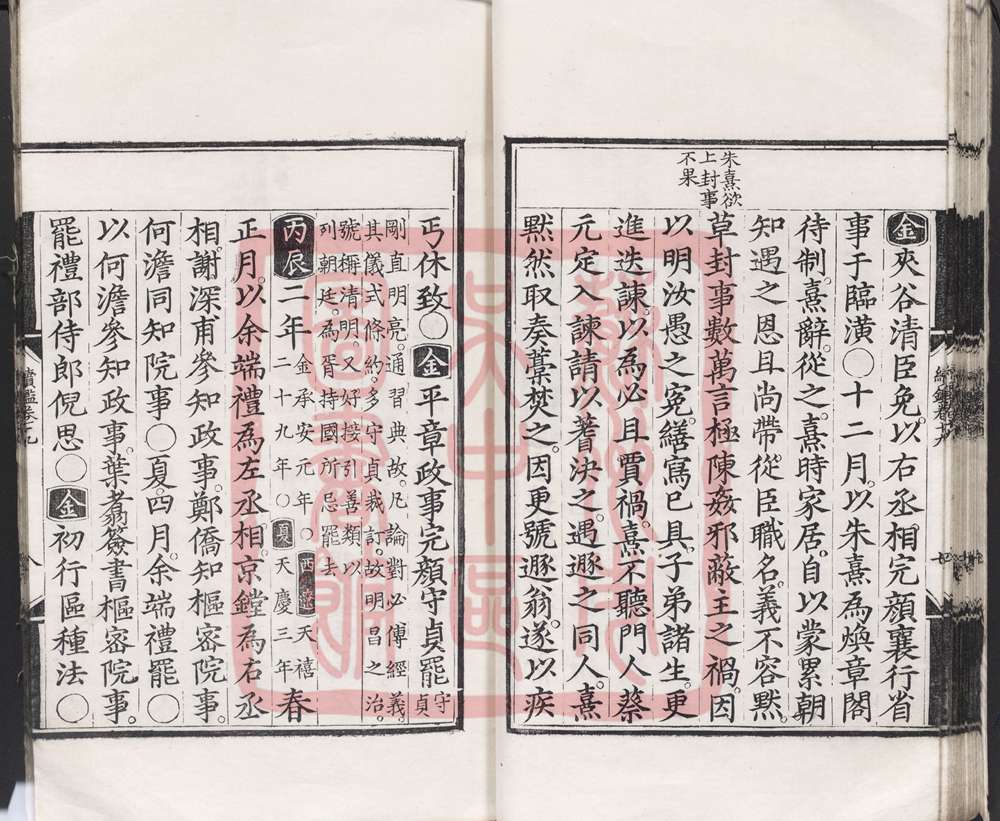 朱熹欲
上封事
不果
金夾谷清臣免。以右丞相完顏襄行省
事于臨潢〇十二月。以朱熹為煥章閣
待制。熹辭。從之。熹時家居。自以蒙累朝
知遇之恩且尚帶從臣職名。義不容默。
草封事數萬言極陳姦邪蔽主之禍。因
以明汝愚之冤。繕寫已具。子弟諸生。更
進迭諫。以為必且賈禍。熹不聽門人蔡
元定入諫。請以蓍決之。遇遯之同人。熹
默然取奏藁焚之。因更號遯翁。遂以疾
丐休致〇金平章政事完顏守貞罷守貞
剛直明亮。通習典故。凡論對必傅經義。
其儀式條約。多守貞裁訂。故明昌之治。
號稱清明。又好接引善類。以
列朝廷。為胥持國所忌罷去
丙辰二年金承安元年〇西遼天禧
二十九年〇夏天慶三年春
正月。以余端禮為左丞相。京鏜為右丞
相。謝深甫參知政事。鄭僑知樞密院事。
何澹同知院事〇夏。四月。余端禮罷〇
以何澹參知政事。葉翥簽書樞密院事。
罷禮部侍郎倪思〇金初行區種法〇
續鑑卷十九